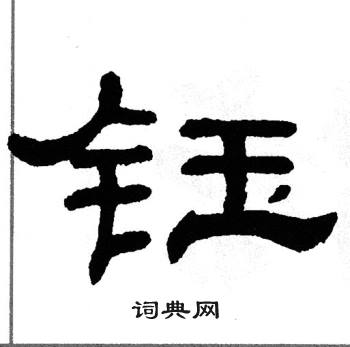 钰
词典网